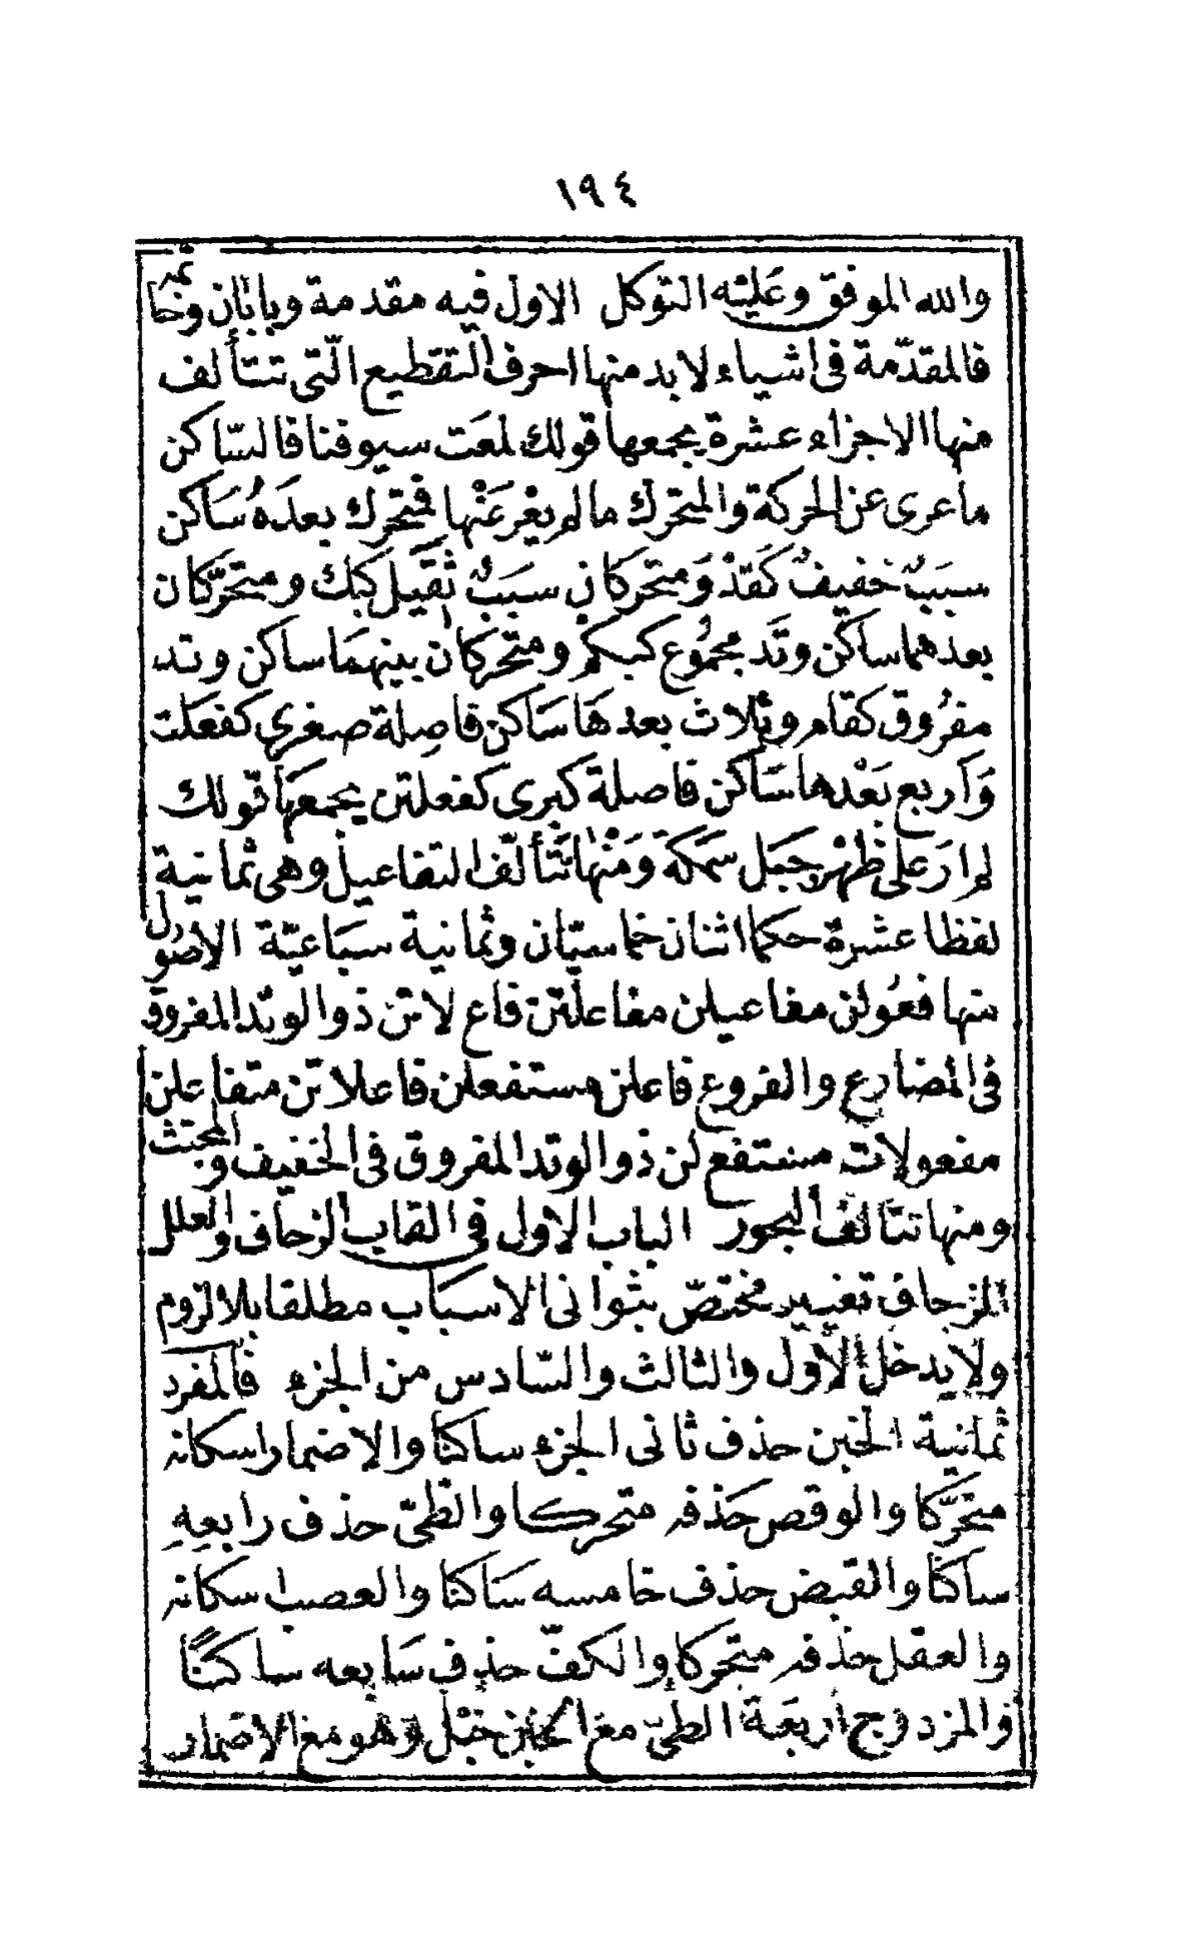 ١٩٤
والله الموفق وعليه التوكل الاول فيه مقدمة وبابان وخاتمة
فالمقدّمة فى اشياء لابد منها احرف التقطيع الّتى تتألف
منها الاجزاء عشرة يجمعها قولك لمعَت سيوفنا فالسّاكن
ما عرى عن الحركة والمتحرك ما لم يعْر عَنْها فمتحرك بعدَهُ سَاكن
سبَبٌ خفيفٌ كَقدْ وَمتحركان سبَبٌ ثقيل كبك ومتحرّكان
بعدهما ساكن وتَد مجمُوع كبكم ومتحركان بينهمَا ساكن وتد
مفرُوق كقام وثلاث بعدهَا سَاكن فاصِلة صغرى كفعَلت
وَاربع بَعْدها سَاكن فاصلة كبرى كفعلتن يجمعهَا قولك
لم ارَ على ظهْر جبَل سمكة وَمنْها تتألّف التفاعيل وهى ثمانية
لفظا عشرة حكما اثنان خماسيّان وثمانية سبَاعيّة الاصُول
منها فعُولن مفاعيلن مفاعلتن فاع لاتن ذو الوتد المفروق
فى المضارع والفروع فاعلن مستفعلن فاعلاتن متفاعلن
مفعولات مستفع لن ذو الوتد المفروق فى الخفيف والمجتث
ومنها تتالف البحور الباب الاول فى القاب الزحاف والعلل
الزحاف تغيير مختصّ بثوانى الاسبَاب مطلقا بلا لزوم
ولا يدخل الأول والثالث والسّادس من الجزء فالمفرد
ثمانية الخبن حذف ثانى الجزء ساكنا والاضمار اسكانه
متحرّكا والوقص حَذفه متحركا والطىّ حذف رابعِهِ
ساكنا والقبض حذف خامسه سَاكنا والعصب اسكانه
والعقل حذفه متحركا والكفّ حذف سَابعه ساكنًا
والمزدوج اربعَة الطىّ مع الخبن خبْل وهو مع الاضمار